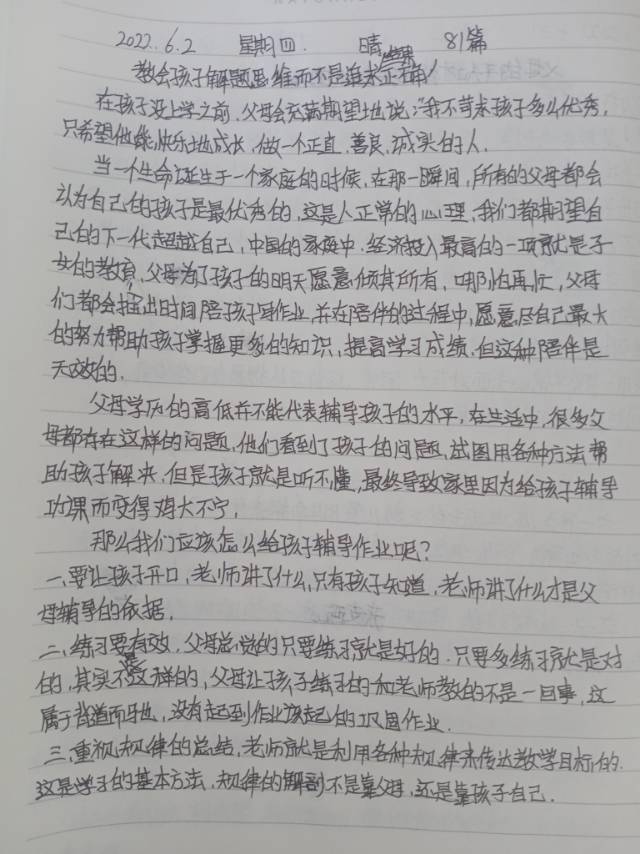 2022.6.2 星期四. 晴 81篇
教会孩子解题思维而不是追求正确答案!
在孩子没上学之前,父母会充满期望地说:“我不苛求孩子多么优秀,
只希望他能快乐地成长,做一个正直、善良、诚实的人.
当一个生命诞生于一个家庭的时候,在那一瞬间,所有的父母都会
认为自己的孩子是最优秀的,这是人正常的心理,我们都期望自
己的下一代超越自己,中国的家庭中,经济投入最高的一项就是子
女的教育,父母为了孩子的明天愿意倾其所有,哪怕再忙,父母
们都会抽出时间陪孩子写作业,并在陪伴的过程中,愿意尽自己最大
的努力帮助孩子掌握更多的知识,提高学习成绩.但这种陪伴是
无效的.
父母学历的高低并不能代表辅导孩子的水平,在生活中,很多父
母都存在这样的问题,他们看到了孩子的问题,试图用各种方法帮
助孩子解决,但是孩子就是听不懂,最终导致家里因为给孩子辅导
功课而变得鸡犬不宁.
那么我们应该怎么给孩子辅导作业呢?
一、要让孩子开口,老师讲了什么,只有孩子知道,老师讲了什么才是父
母辅导的依据.
二、练习要有效,父母总觉的只要练习就是好的.只要多练习就是对
的,其实不是这样的,父母让孩子练习的和老师教的不是一回事,这
属于背道而驰,没有起到作业该起的巩固作业.
三、重视规律的总结,老师就是利用各种规律来传达教学目标的.
这是学习的基本方法,规律的解剖不是靠父母,还是靠孩子自己.